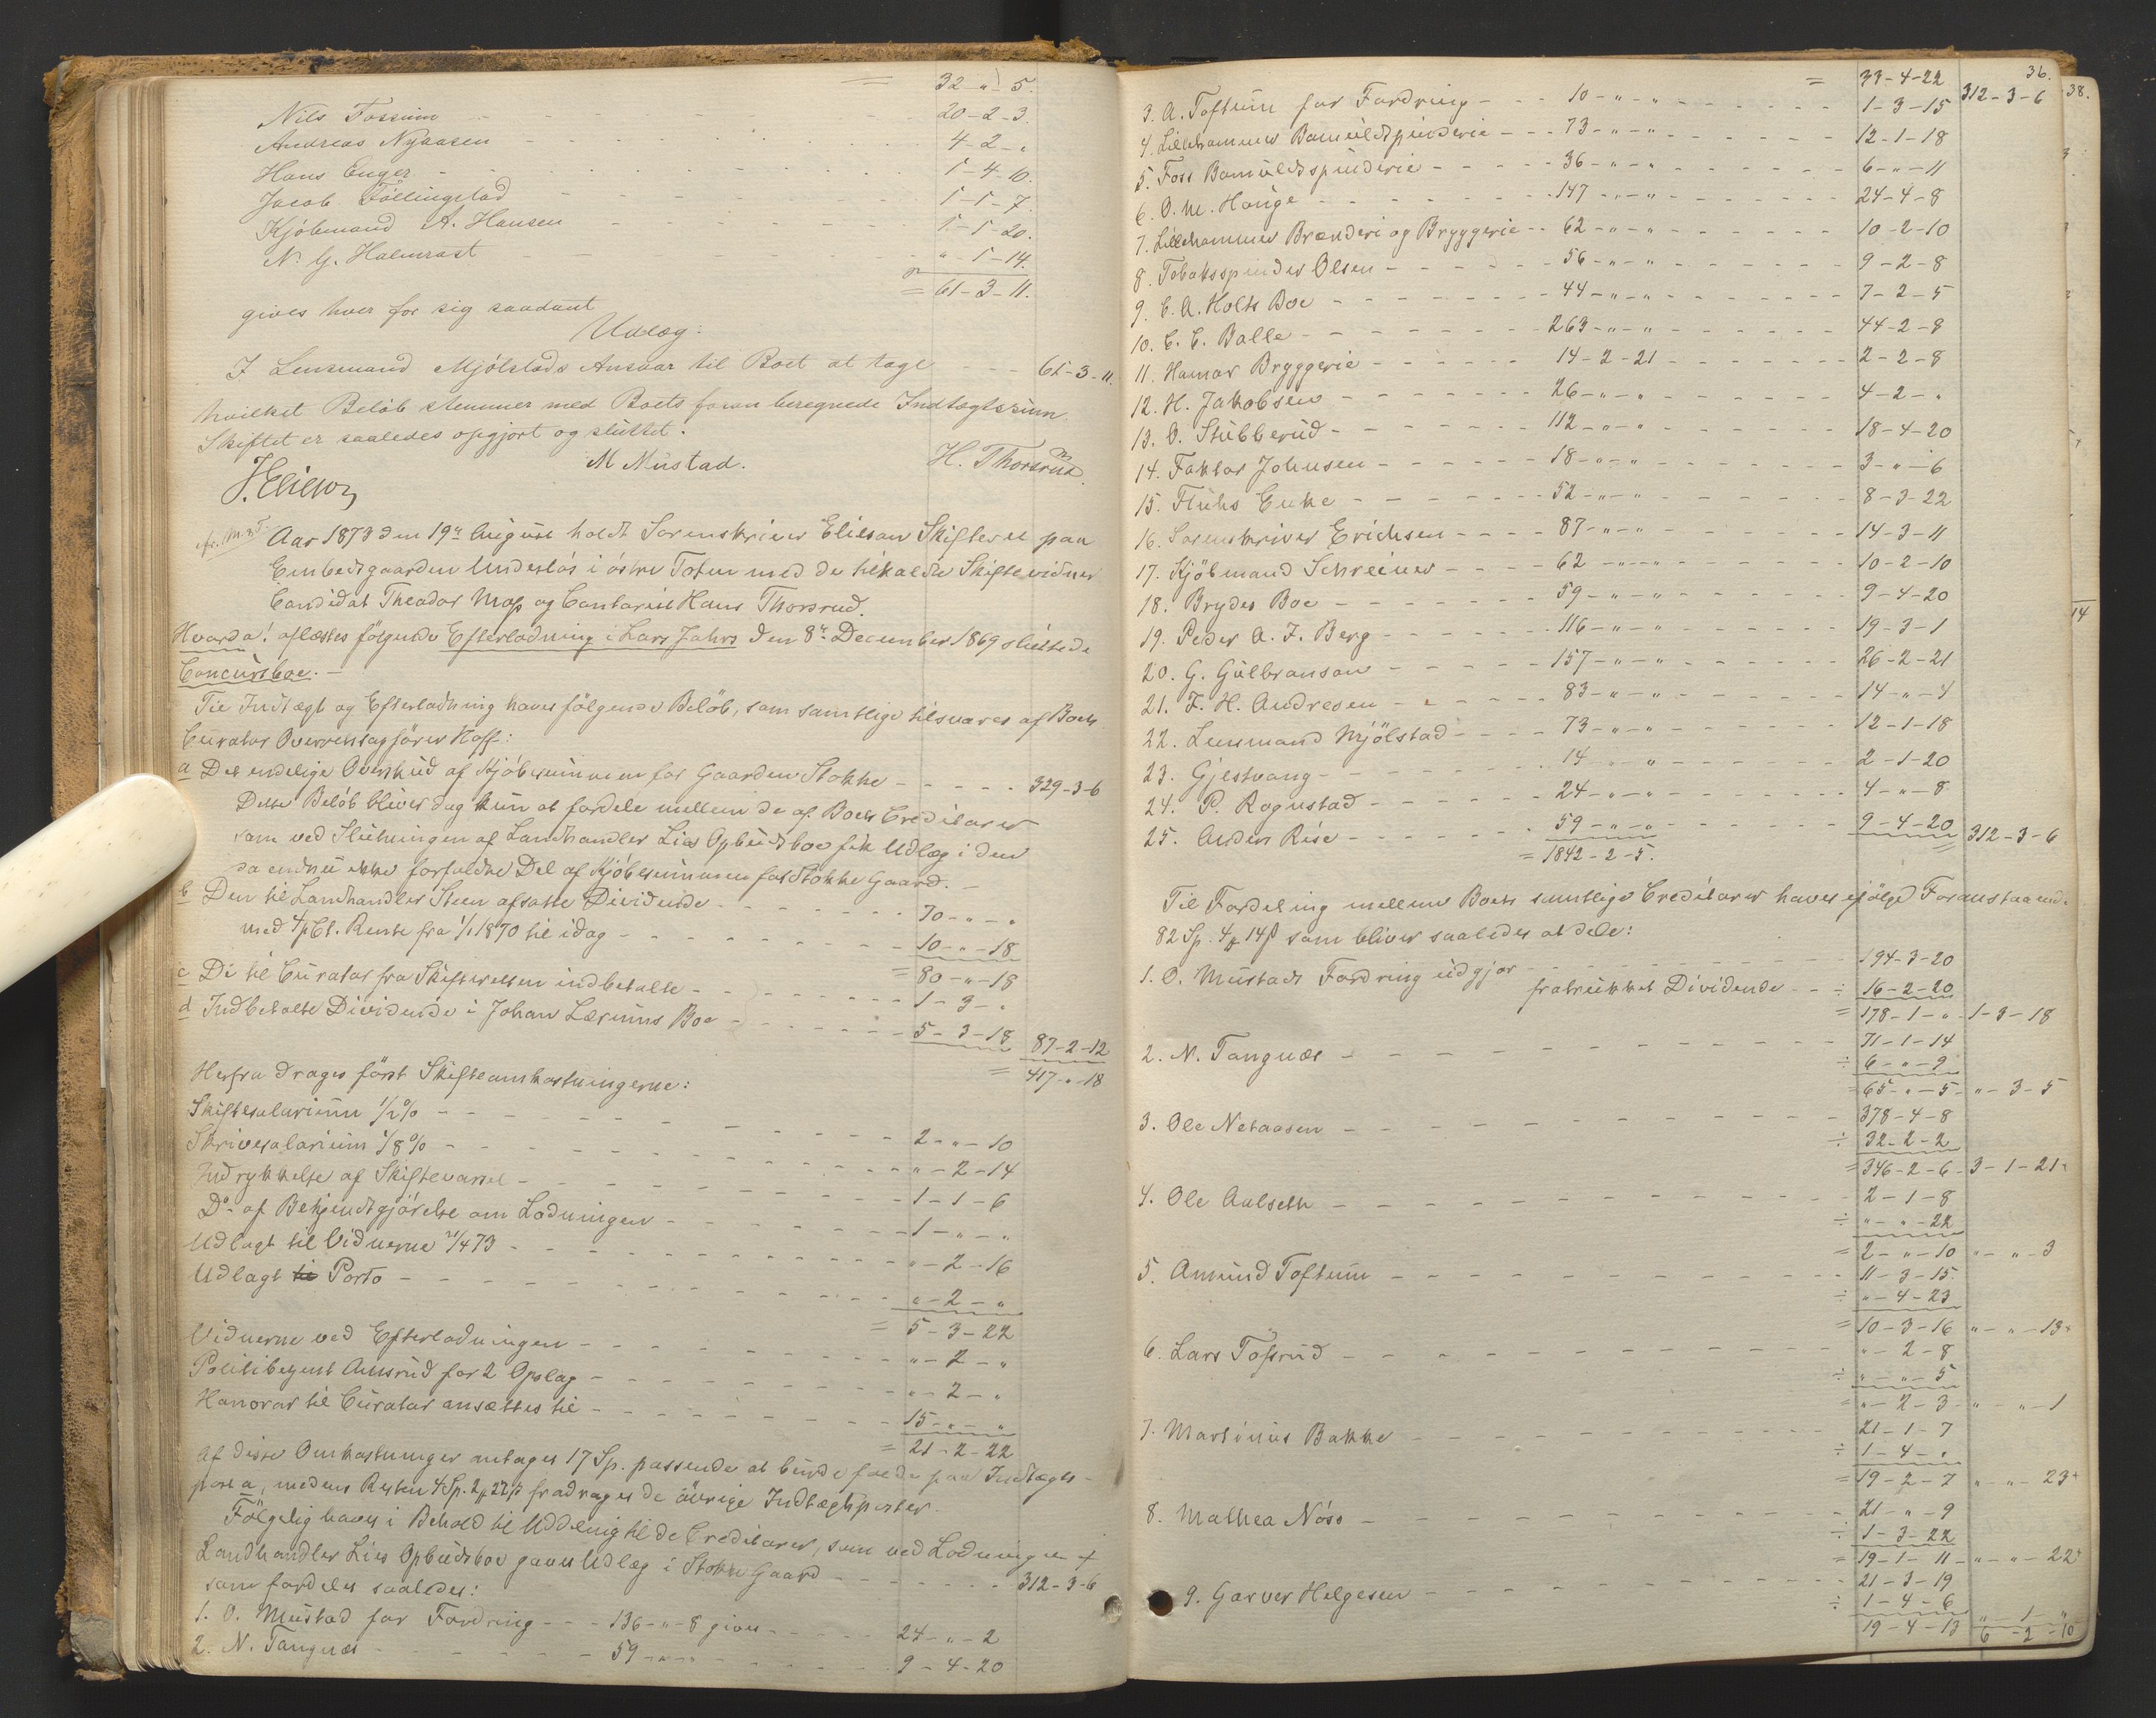 = 32 - " - 5.
Nils Fossum - - - 20 - 2 - 3.
Andreas Nyaasen - - - 4 - 2 - "
Hans Enger - - - 1 - 4 - 10.
Jacob Föllingstad - - - 1 - 1 - 7.
Kjöbmand A. Hansen - - - 1 - 1 - 20.
N. G. Halmrast - - - " - 1 - 14.
= 61 - 3 - 11.
gives hver for sig saadant
Udlæg:
I Lensmand Mjölstads Ansvar til Boet at tage - - - 61 - 3 - 11.
hvilket Belöb stemmer med Boets foran beregnede Indtægtssum.
Skiftet er saaledes opgjort og sluttet.
J. Elieson M Mustad. H. Thorsrud.
Aar 1873 den 19de August holdt Sorenskriver Elieson Skifteret paa
Embedsgaarden Undeslös i östre Toten med de tilkaldte Skiftevidner
Candidat Theodor Moss og Contorist Hans Thorsrud.
Hvorda! aflæstes fölgende Efterlodning i Lars Jahrs den 8de December 1869 sluttede
Concursboe. -
Til Indtægt og Efterlodning haves fölgende Belöb, som samtlige tilsvares af Boets
Curator Overretssagförer Hoff:
a Det endelige Overskud af Kjöbesummen for Gaarden Stokke - - - 329 - 3 - 6
Dette Belöb bliver dog kun at fordele mellem de af Boets Creditorer
som ved Slutningen af Landhandler Lies Opbudsboe fik Udlæg i den
da endnu ikke forfaldne Del af Kjöbesummen for Stokke Gaard. -
b Den til Landhandler Steen afsatte Dividende - - - 70 - " - "
med 4 pCt. Rente fra 1/1 1870 til idag - - - 10 - " - 18
= 80 - " - 18
c De til Curator fra Skifteretten indbetalte - - - 1 - 3 - "
d Indbetalte Dividende i Johan Lærums Boe - - - 5 - 3 - 18 87 - 2 - 12
= 417 - " - 18
Herfra drages först Skifteomkostningerne:
Skiftesalarium 1/2 % - - - 2 - " - 10
Skrivesalarium 1/8 % - - - " - 2 - 14
Indrykkelse af Skiftevarsel - - - 1 - 1 - 6
Do af Bekjendtgjörelse om Lodningen - - - 1 - " - "
Udlagt til Vidnerne 21/4 73 - - - " - 2 - 16
Udlagt til Porto - - - " - 2 - "
= 5 - 3 - 22
Vidnerne ved Efterlodningen - - - " - 2 - "
Politibetjent Amsrud for 2 Opslag - - - " - 2 - "
Honorar til Curator ansættes til - - - 15 - " - "
= 21 - 2 - 22
Af disse Omkostninger antages 17 Sp. passende at burde falde paa Indtægts-
post a, medens Resten 4 Sp. 2 22 ß fradrages de övrige Indtægtsposter.
Fölgelig haves i Behold til Uddeling til de Creditorer, som ved Lodningen af
Landhandler Lies Opbudsboe gaves Udlæg i Stokke Gaard - - - 312 - 3 - 6
som fordeles saaledes:
1. O. Mustad for Fordring - - - 136 - " - 8 gives - - - 24 - " - 2
2. N. Tangnæs - - - 59 - " - " - - - 9 - 4 - 20
36.
38.
= 33 - 4 - 22 312 - 3 - 6
3. A. Toftum for Fordring - - - 10 - " - " - - - 1 - 3 - 15
4. Lillehammer Bomuldspinderie - - - 73 - " - " - - - 12 - 1 - 18
5. Foss Bomuldsspinderie - - - 36 - " - " - - - 6 - " - 11
6. O. M. Hauge - - - 147 - " - " - - - 24 - 4 - 8
7. Lillehammer Brænderi og Bryggerie - - 62 - " - " - - - 10 - 2 - 10
8. Tobaksspinder Olsen - - - 56 - " - " - - - 9 - 2 - 8
9. C. A. Holts Boe - - - 44 - " - " - - - 7 - 2 - 5
10. C. C. Balle - - - 263 - " - " - - - 44 - 2 - 8
11. Hamar Bryggerie - - - 14 - 2 - 21 - - - 2 - 2 - 8
12. H. Jakobsen - - - 26 - " - " - - - 4 - 2 - "
13. O. Stubberud - - - 112 - " - " - - - 18 - 4 - 20
14. Faktor Johnsen - - - 18 - " - " - - - 3 - " - 6
15. Fluhs Enke - - - 52 - " - " - - - 8 - 3 - 22
16. Sorenskriver Erichsen - - - 87 - " - " - - - 14 - 3 - 11
17. Kjöbmand Schreiner - - - 62 - " - " - - - 10 - 2 - 10
18. Brydes Boe - - - 59 - " - " - - - 9 - 4 - 20
19. Peder A. J. Berg - - - 116 - " - " - - - 19 - 3 - 1
20. G. Gulbranson - - - 157 - " - " - - - 26 - 2 - 21
21. J. H. Andresen - - - 83 - " - " - - - 14 - " - 4
22. Lensmand Mjölstad - - - 73 - " - " - - - 12 - 1 - 18
23. Gjestvang - - - 14 - " - " - - - 2 - 1 - 20
24. P. Rognstad - - - 24 - " - " - - - 4 - " - 8
25. Anders Rise - - - 59 - " - " - - - 9 - 4 - 20 312 - 3 - 6
= 1842 - 2 - 5.
Til Fordeling mellem Boets samtlige Creditorer haves ifölge Foranstaaende
82 Sp. 4 14 ß som bliver saaledes at dele:
1. O. Mustads Fordring udgjør - - - 194 - 3 - 20
fratrukket Dividende - - ÷ 16 - 2 - 20
= 178 - 1 - " - 1 - 3 - 18
2. N. Tangnæs - - - 71 - 1 - 14
÷ 6 - " - 9
= 65 - " - 5 - " - 3 - 5
3. Ole Netaasen - - - 378 - 4 - 8
÷ 32 - 2 - 2
= 346 - 2 - 6 - 3 - 1 - 21
4. Ole Aalseth - - - 2 - 1 - 8
÷ " - " - 22
= 2 - " - 10 " - " - 3
5. Amund Toftum - - - 11 - 3 - 15
÷ " - 4 - 23
= 10 - 3 - 16 " - " - 13
6. Lars Tossrud - - - " - 2 - 8
÷ " - " - 5
= " - 2 - 3 - " - " - 1
7. Martinus Bakke - - - 21 - 1 - 7
÷ 1 - 4 - "
= 19 - 2 - 7 " - " - 23
8. Mathea Nöss - - - 21 - " - 9
÷ 1 - 3 - 22
= 19 - 1 - 11 - " - " - 22
9. Garver Helgesen - - - 21 - 3 - 19
÷ 1 - 4 - 6
19 - 4 - 13 " - 1 - "
6 - 2 - 10
14